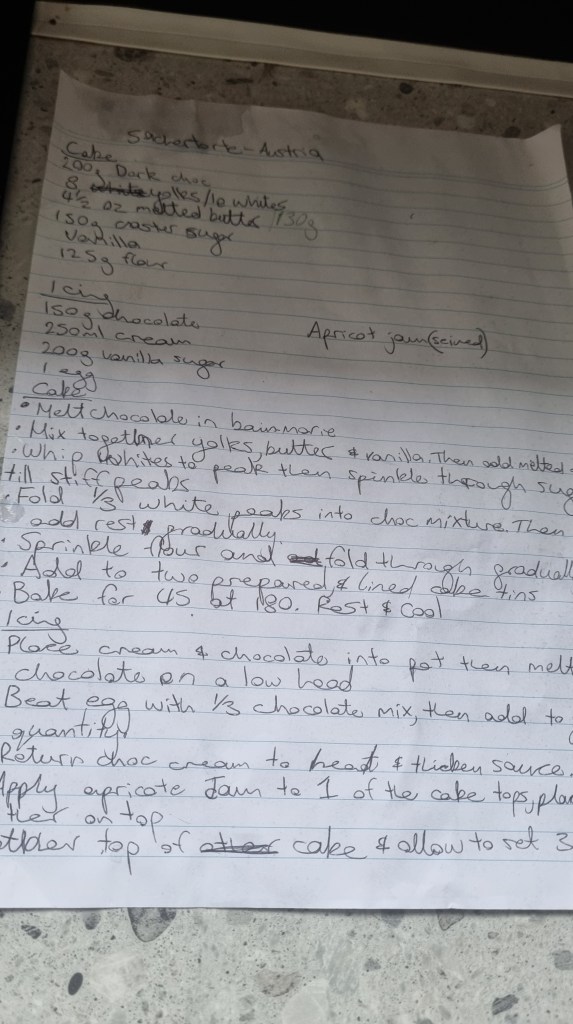 Sachertorte - Austria
Cake
200g Dark choc
8 yolks/10 whites
4½ oz melted butter 130g
150g caster sugar
Vanilla
125g flour
Icing
150g chocolate
250ml cream
Apricot jam (seived)
200g vanilla sugar
1 egg
Cake
• Melt chocolate in bain marie
• Mix together yolks, butter & vanilla. Then add melted
• Whip whites to peak then sprinkle through sug
till stiff peaks
• Fold ⅓ white peaks into choc mixture. Then
add rest gradually.
• Sprinkle flour and fold through gradual
• Add to two prepared & lined cake tins
Bake for 45 at 180. Rest & Cool
Icing
Place cream & chocolate into pot then melt
chocolate on a low head
Beat egg with ⅓ chocolate mix, then add to
quantity
Return choc cream to heat & thicken sauce.
Apply apricote Jam to 1 of the cake tops, plac
ther on top
top of cake & allow to set 3